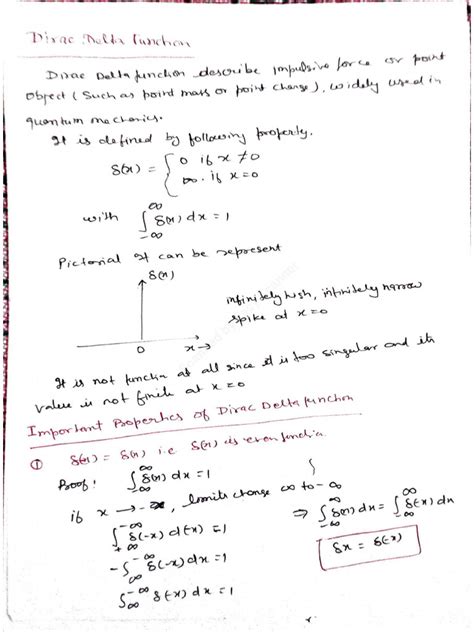 Dirac Delta function
Dirac Delta function describe impulsive force or point
object (Such as point mass or point charge), widely used in
quantum mechanics.
It is defined by following property.
δ(x) = { 0 if x ≠ 0
∞ if x = 0
with ∫_{-∞}^{∞} δ(x) dx = 1
Pictorial it can be represent
δ(x)
infinitely high, infinitely narrow
spike at x = 0
0 x →
It is not function at all since it is too singular and its
value is not finite at x = 0
Important Properties of Dirac Delta function
① δ(x) = δ(x) i.e δ(x) is even function
Proof: ∫_{-∞}^{∞} δ(x) dx = 1
if x → -x, limits change ∞ to -∞
∫_{+∞}^{-∞} δ(-x) d(-x) = 1
-∫_{∞}^{-∞} δ(-x) dx = 1
∫_{-∞}^{∞} δ(-x) dx = 1
⇒ ∫_{-∞}^{∞} δ(x) dx = ∫_{-∞}^{∞} δ(-x) dx
δx = δ(-x)